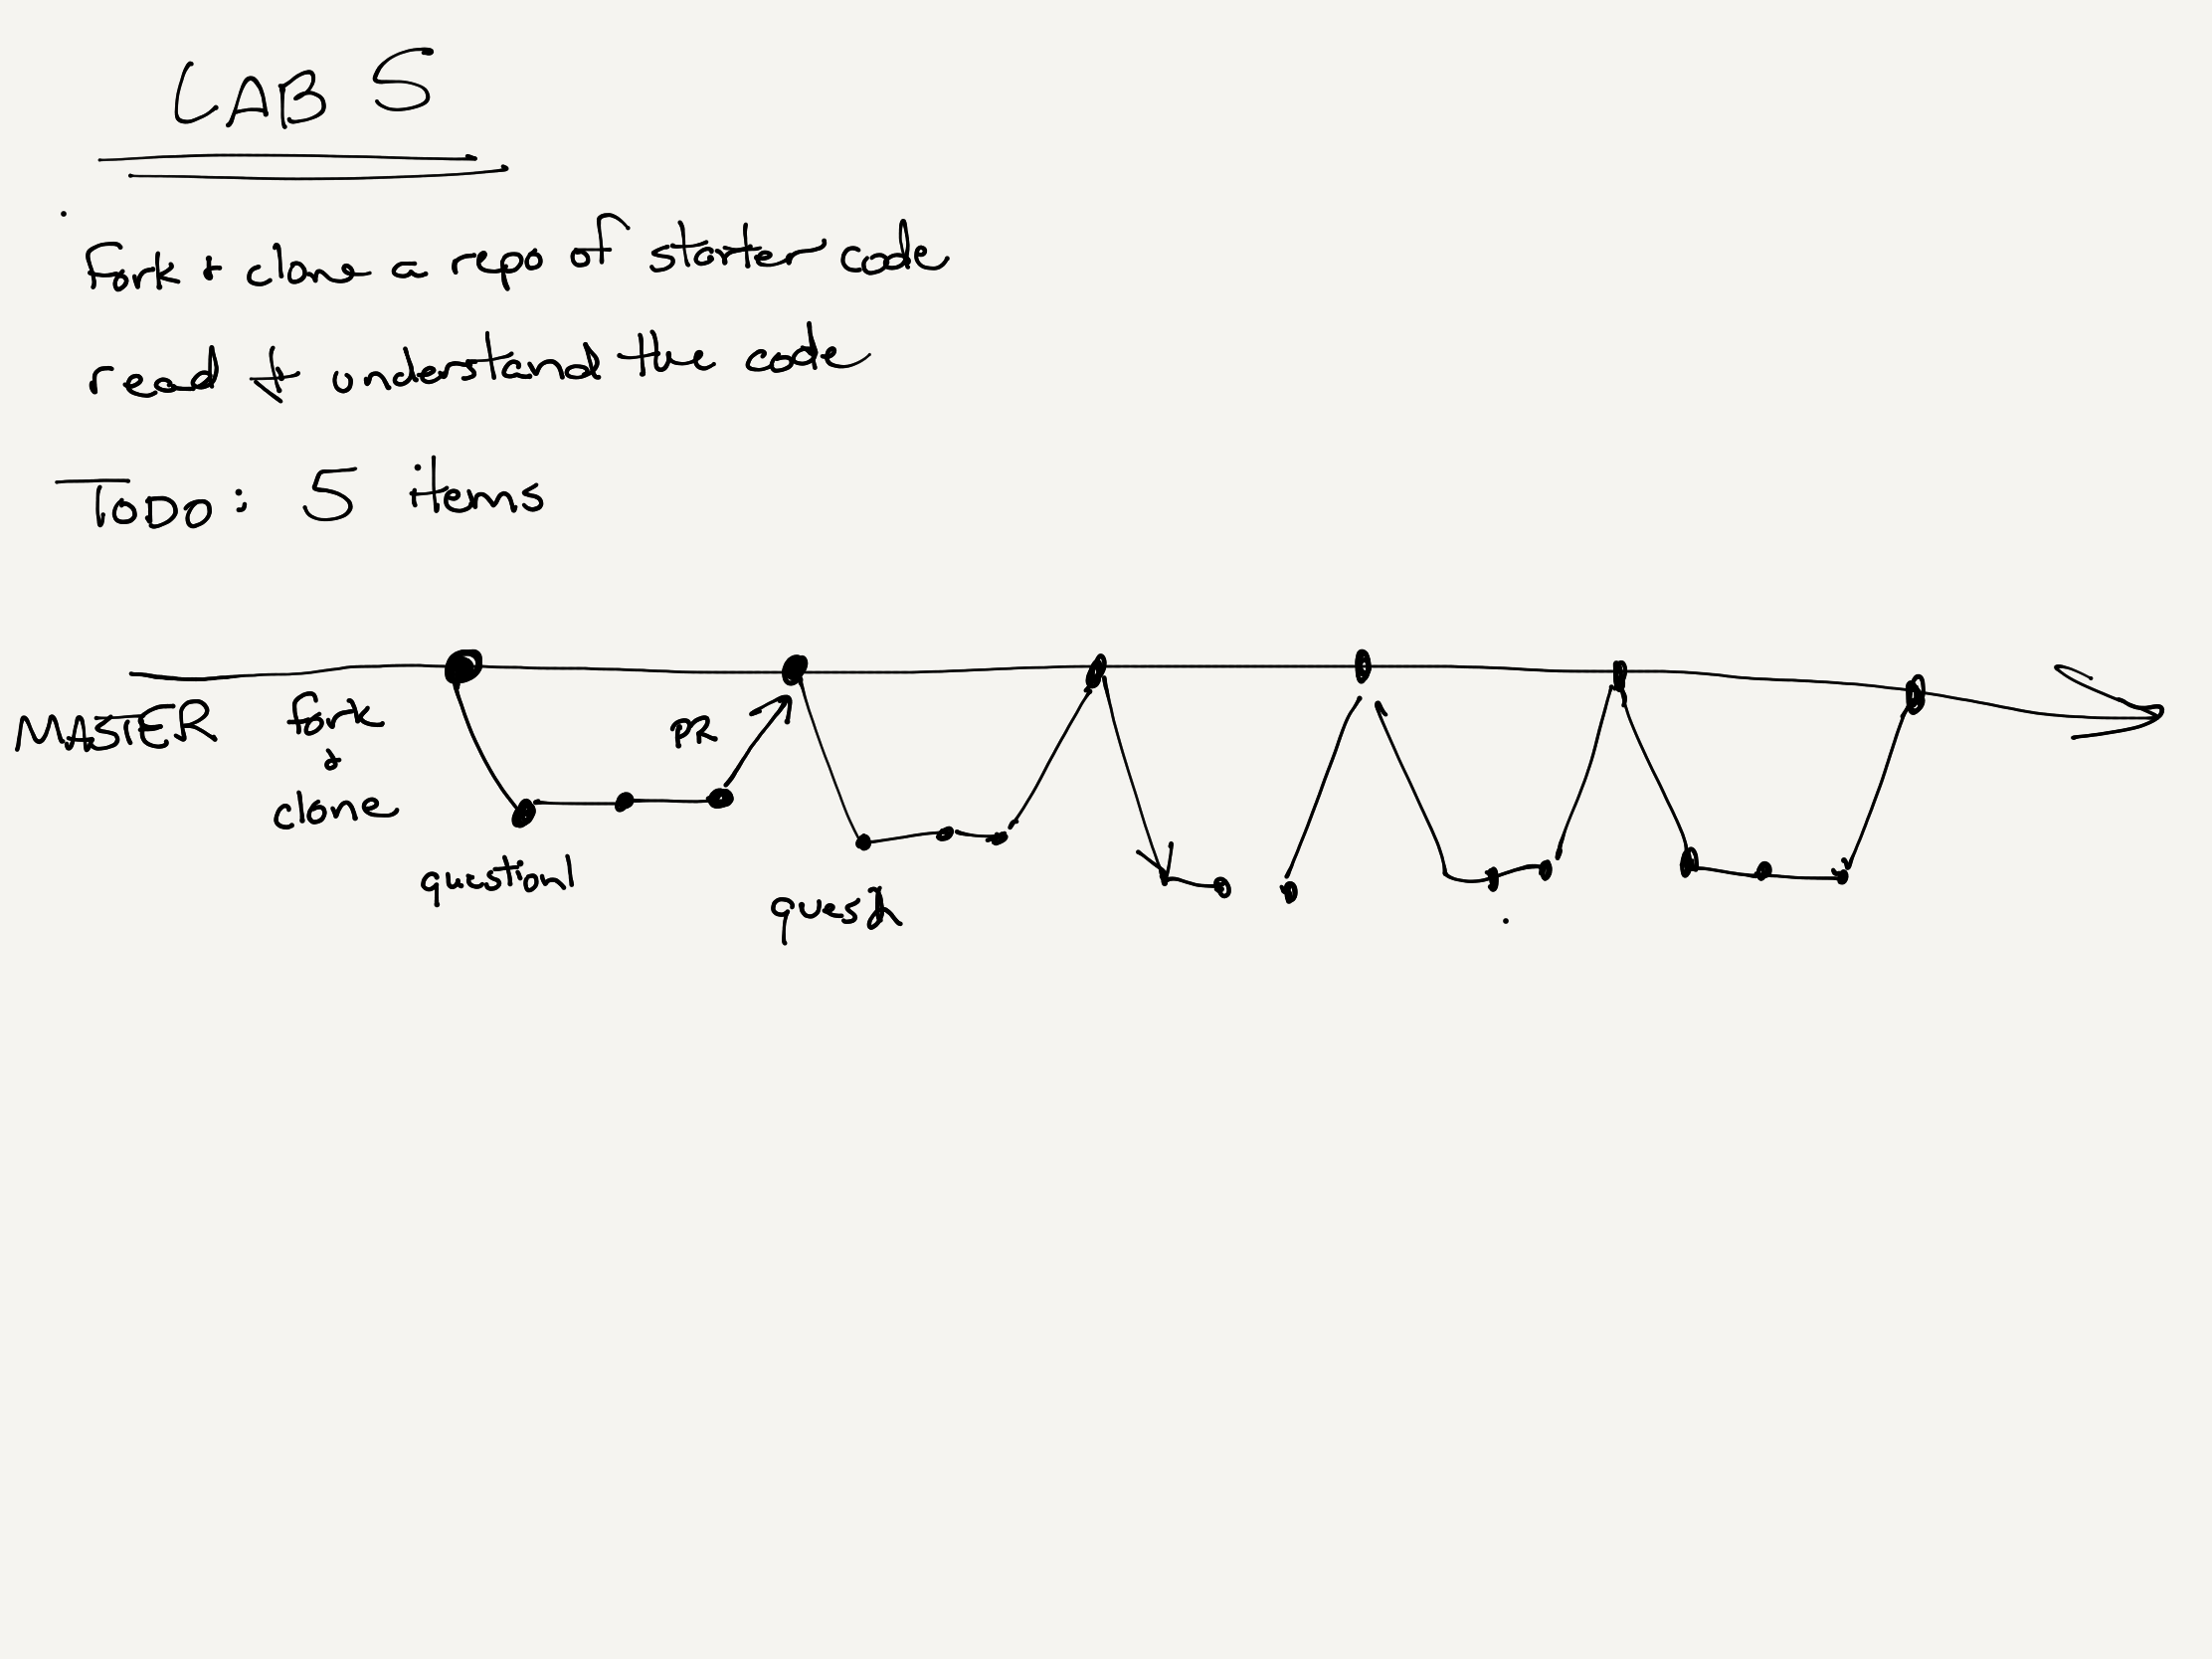 LAB 5
Fork & clone a repo of starter code
read & understand the code
TODO: 5 items
MASTER
fork
&
clone
PR
question1
ques2